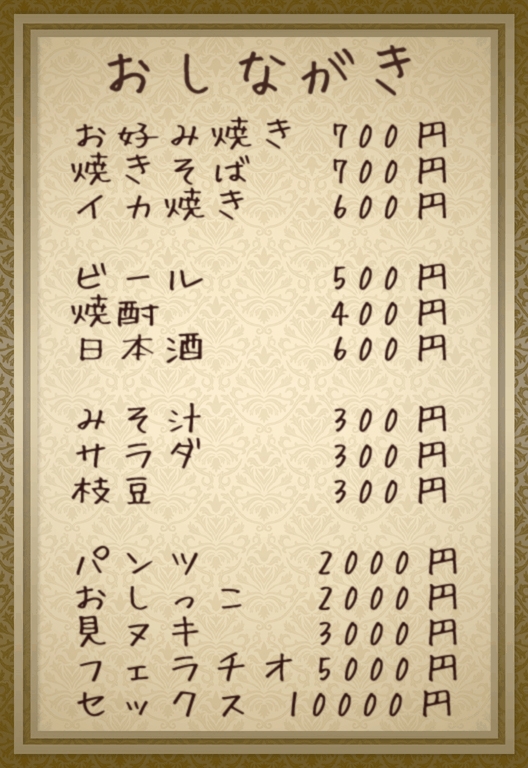 おしながき
お好み焼き 700円
焼きそば 700円
イカ焼き 600円
ビール 500円
焼酎 400円
日本酒 600円
みそ汁 300円
サラダ 300円
枝豆 300円
パンツ 2000円
おしっこ 2000円
見ヌキ 3000円
フェラチオ 5000円
セックス 10000円